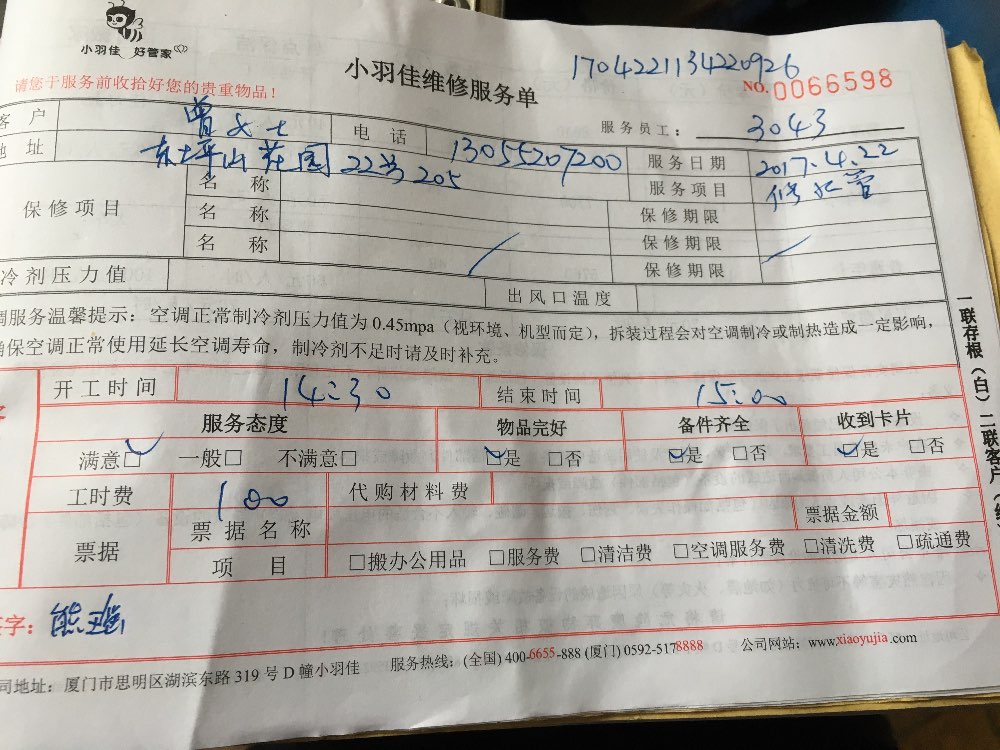 小羽佳 好管家
小羽佳维修服务单
1704221134220926
请您于服务前收拾好您的贵重物品！
NO.0066598
服务员工： 3043
客 户 曾女士 电 话 13055207200 服务日期 2017.4.22
地 址 东坪山庄园22号205 服务项目 修水管
保修项目 名 称 保修期限
名 称 保修期限
名 称 保修期限
冷剂压力值 出风口温度
调服务温馨提示：空调正常制冷剂压力值为 0.45mpa（视环境、机型而定），拆装过程会对空调制冷或制热造成一定影响，
确保空调正常使用延长空调寿命，制冷剂不足时请及时补充。
开工时间 14:30 结束时间 15:00
服务态度 物品完好 备件齐全 收到卡片
满意□ 一般□ 不满意□ □是 □否 □是 □否 □是 □否
工时费 100 代购材料费
票据 票据名称 票据金额
项 目 □搬办公用品 □服务费 □清洁费 □空调服务费 □清洗费 □疏通费
签字：
司地址：厦门市思明区湖滨东路 319 号 D 幢小羽佳 服务热线：(全国) 400-6655-888 (厦门) 0592-5178888 公司网站：www.xiaoyujia.com
一联存根（白）二联客户（红